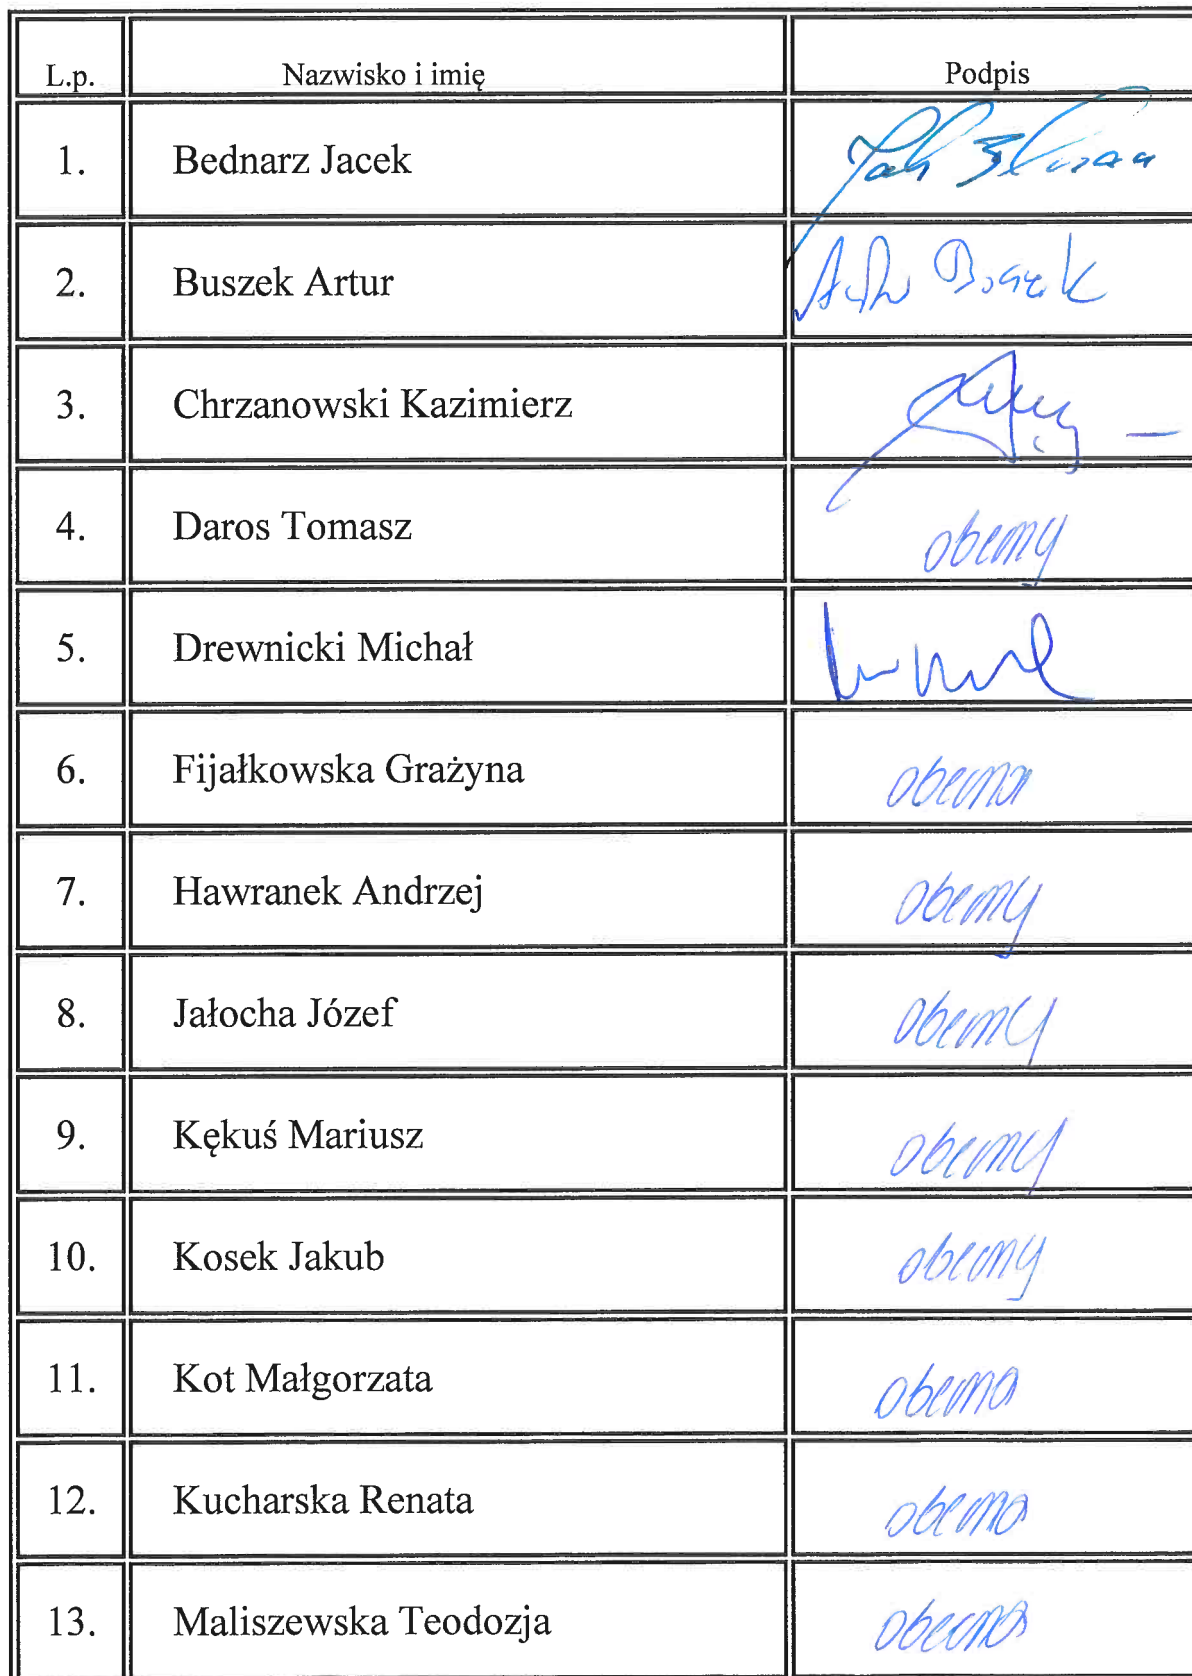 L.p. Nazwisko i imię Podpis
1. Bednarz Jacek
2. Buszek Artur Artur Buszek
3. Chrzanowski Kazimierz
4. Daros Tomasz obecny
5. Drewnicki Michał
6. Fijałkowska Grażyna obecna
7. Hawranek Andrzej obecny
8. Jałocha Józef obecny
9. Kękuś Mariusz obecny
10. Kosek Jakub obecny
11. Kot Małgorzata obecna
12. Kucharska Renata obecna
13. Maliszewska Teodozja obecna